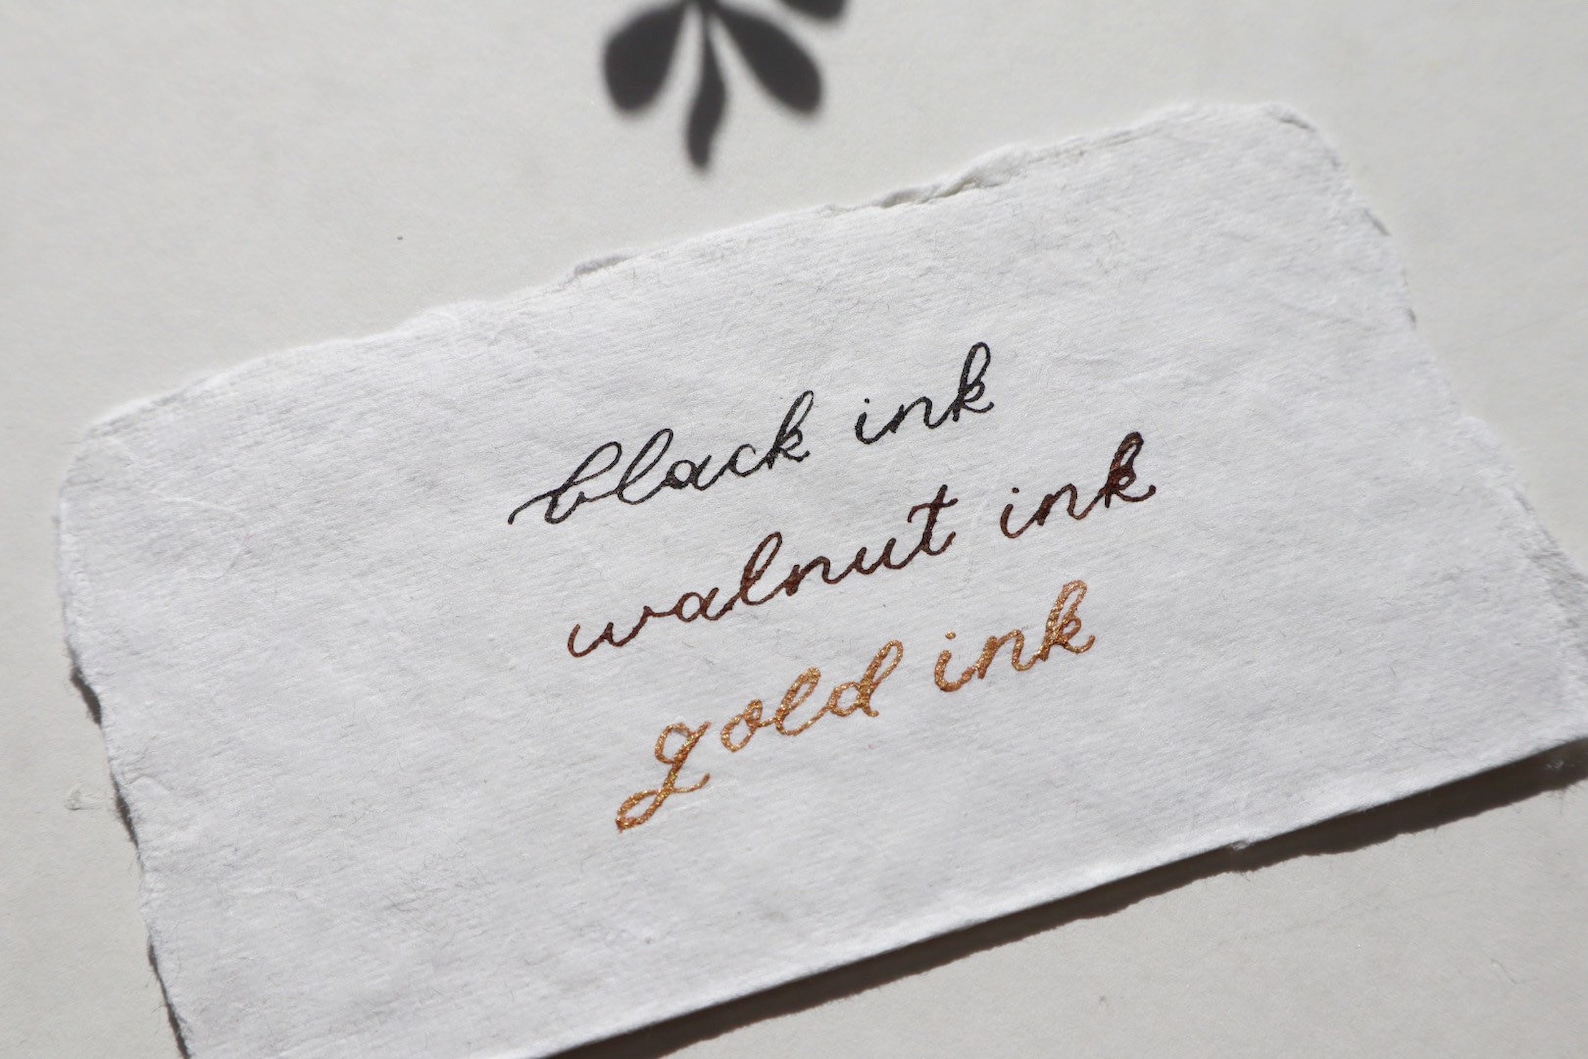 black ink
walnut ink
gold ink